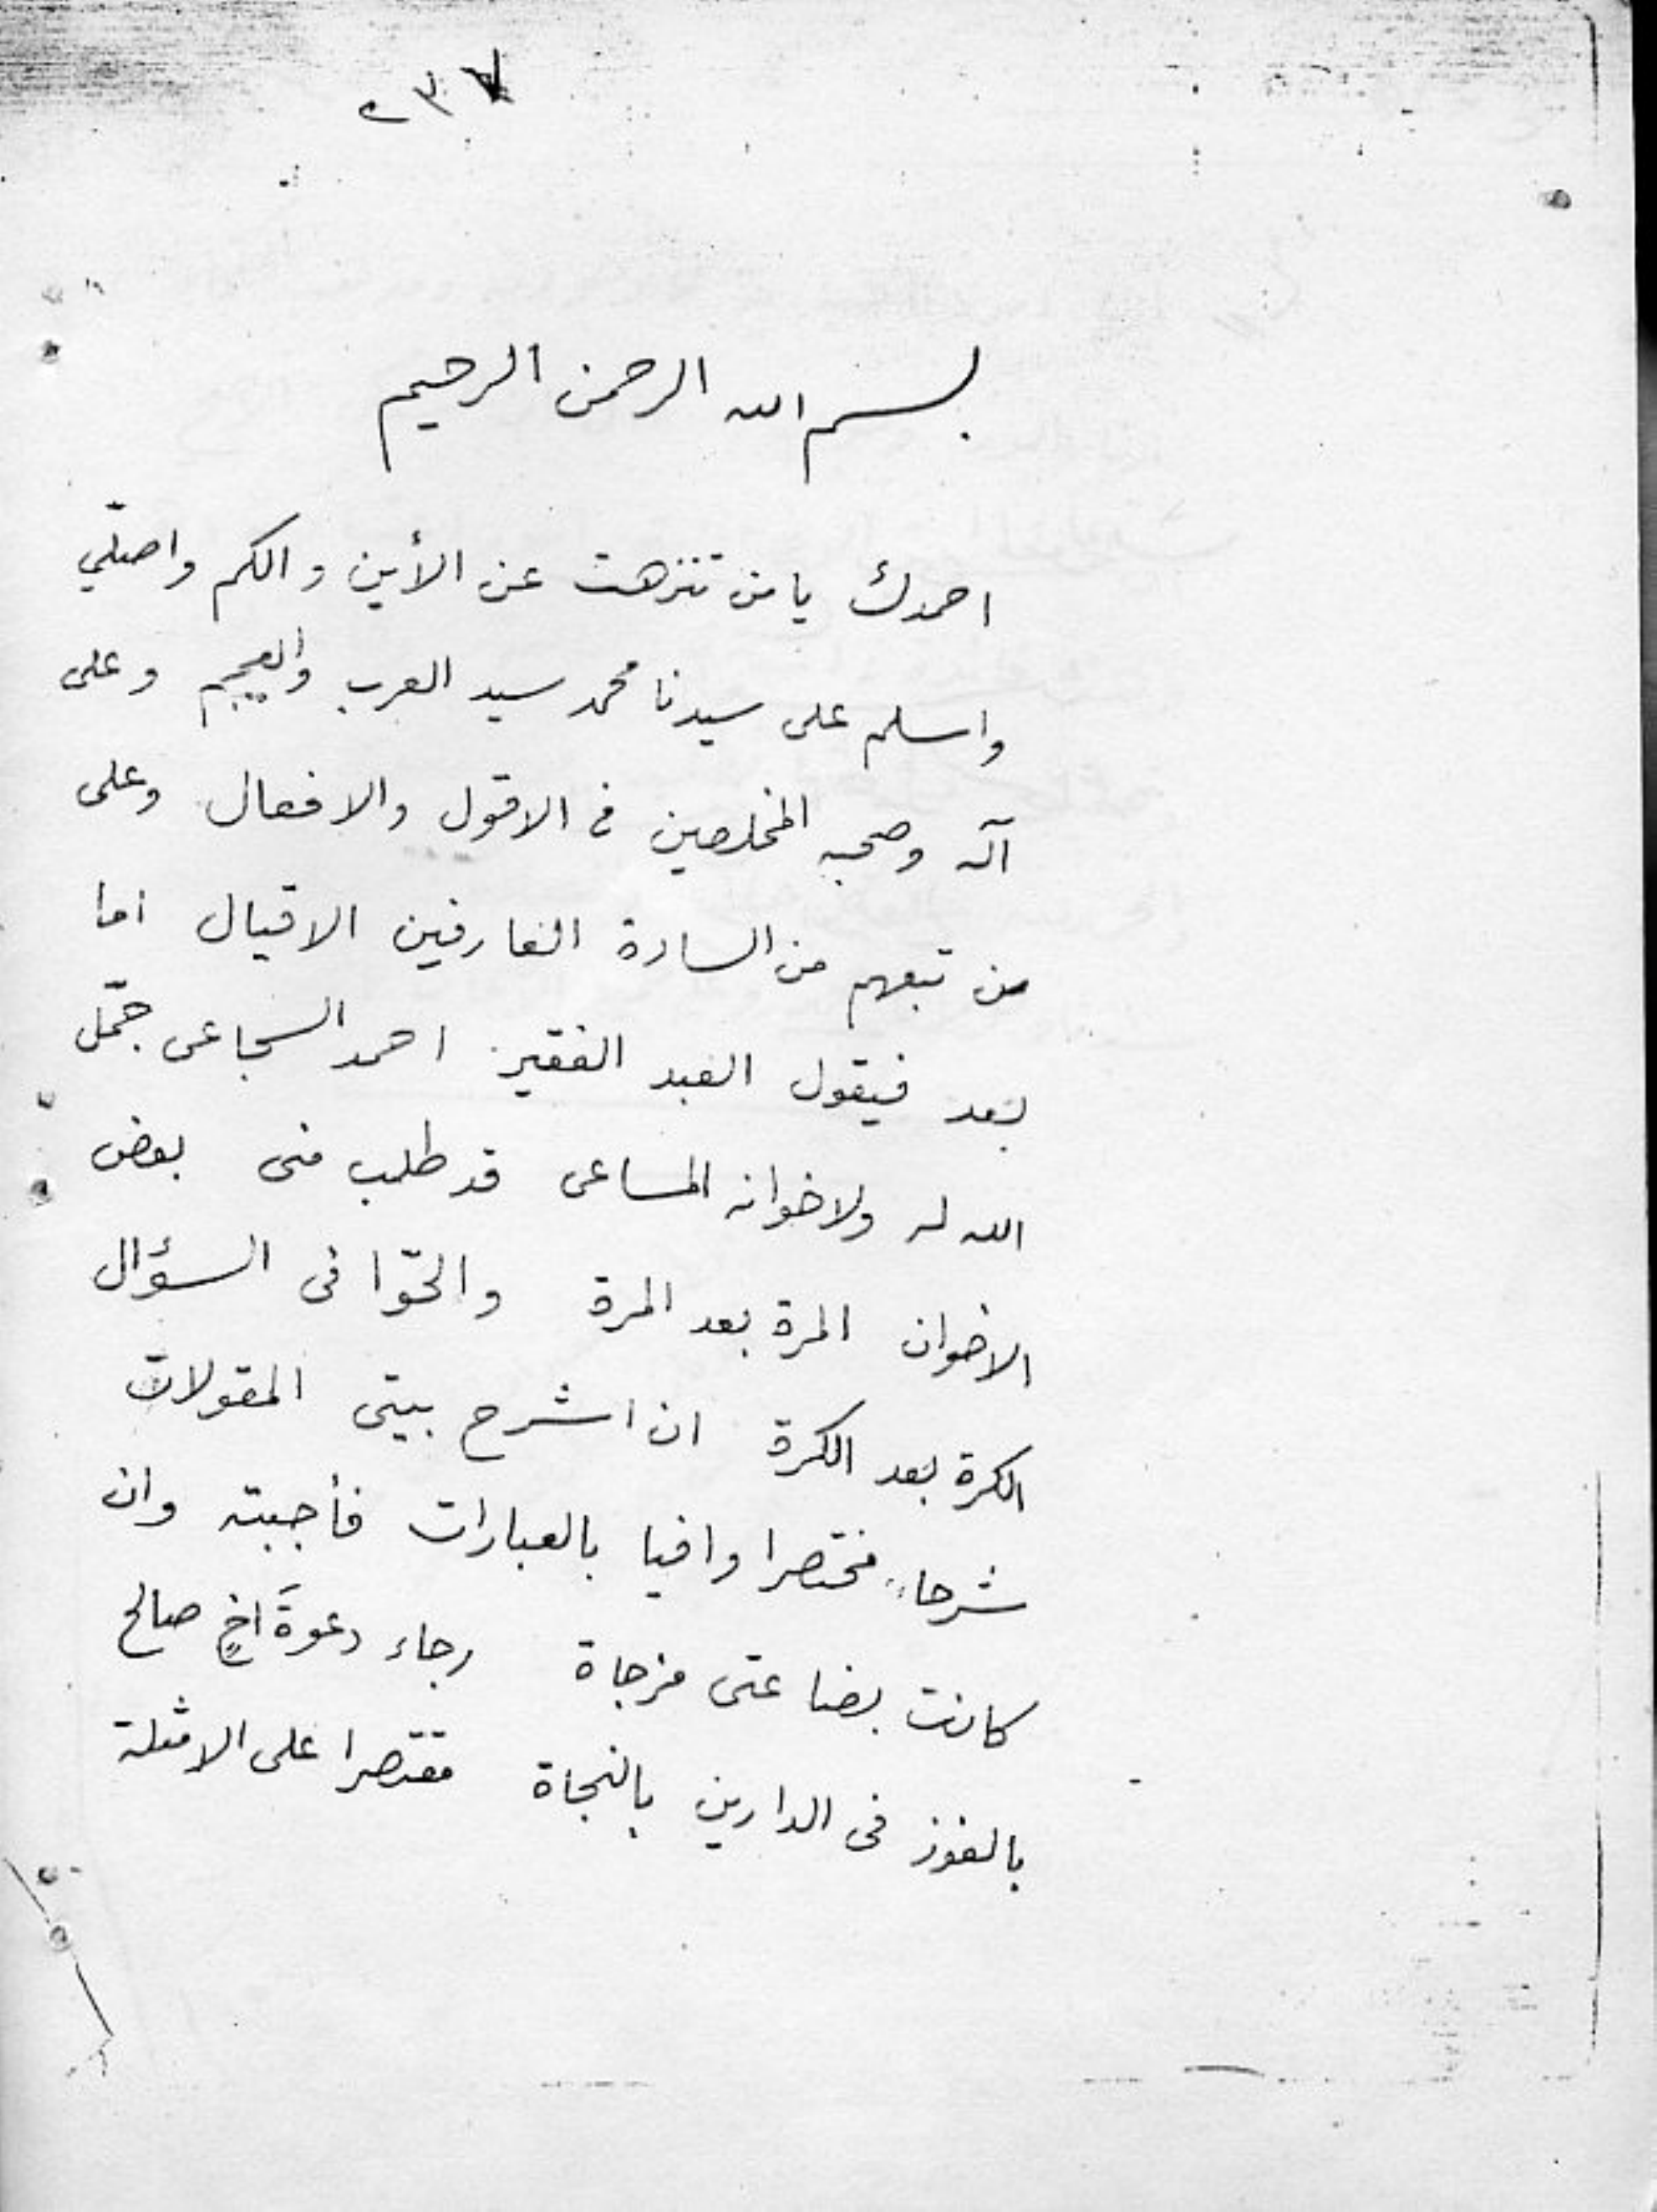 ٢٣٧
بسم الله الرحمن الرحيم
احمدك يا من تنزهت عن الأين والكم واصلّي
واسلم على سيدنا محمد سيد العرب والعجم وعلى
آله وصحبه المخلصين فى الاقول والافعال وعلى
من تبعهم من السادة العارفين الاقيال اما
بعد فيقول العبد الفقير احمد السجاعى جمّل
الله له ولاخوانه المساعى قد طلب منى بعض
الاخوان المرة بعد المرة والحّوا فى السؤال
الكرة بعد الكرة ان اشرح بيتى المقولات
شرحا مختصرا وافيا بالعبارات فأجبته وان
كانت بضاعتى مزجاة رجاء دعوةَ اخٍ صالح
بالفوز فى الدارين بالنجاة مقتصرا على الامثلة